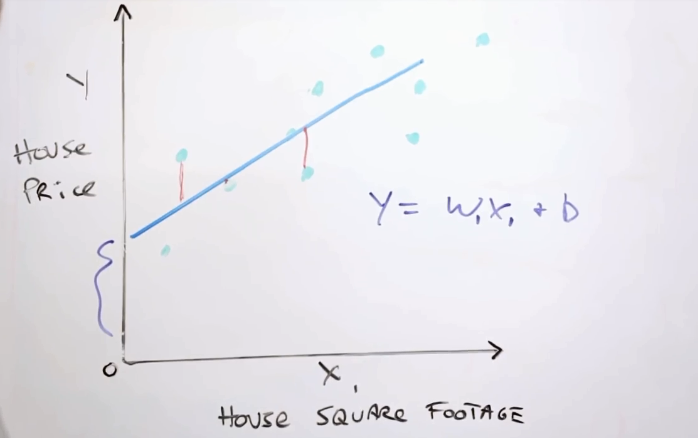 Y
House
Price
Y = w₁x₁ + b
0
X₁
House Square Footage